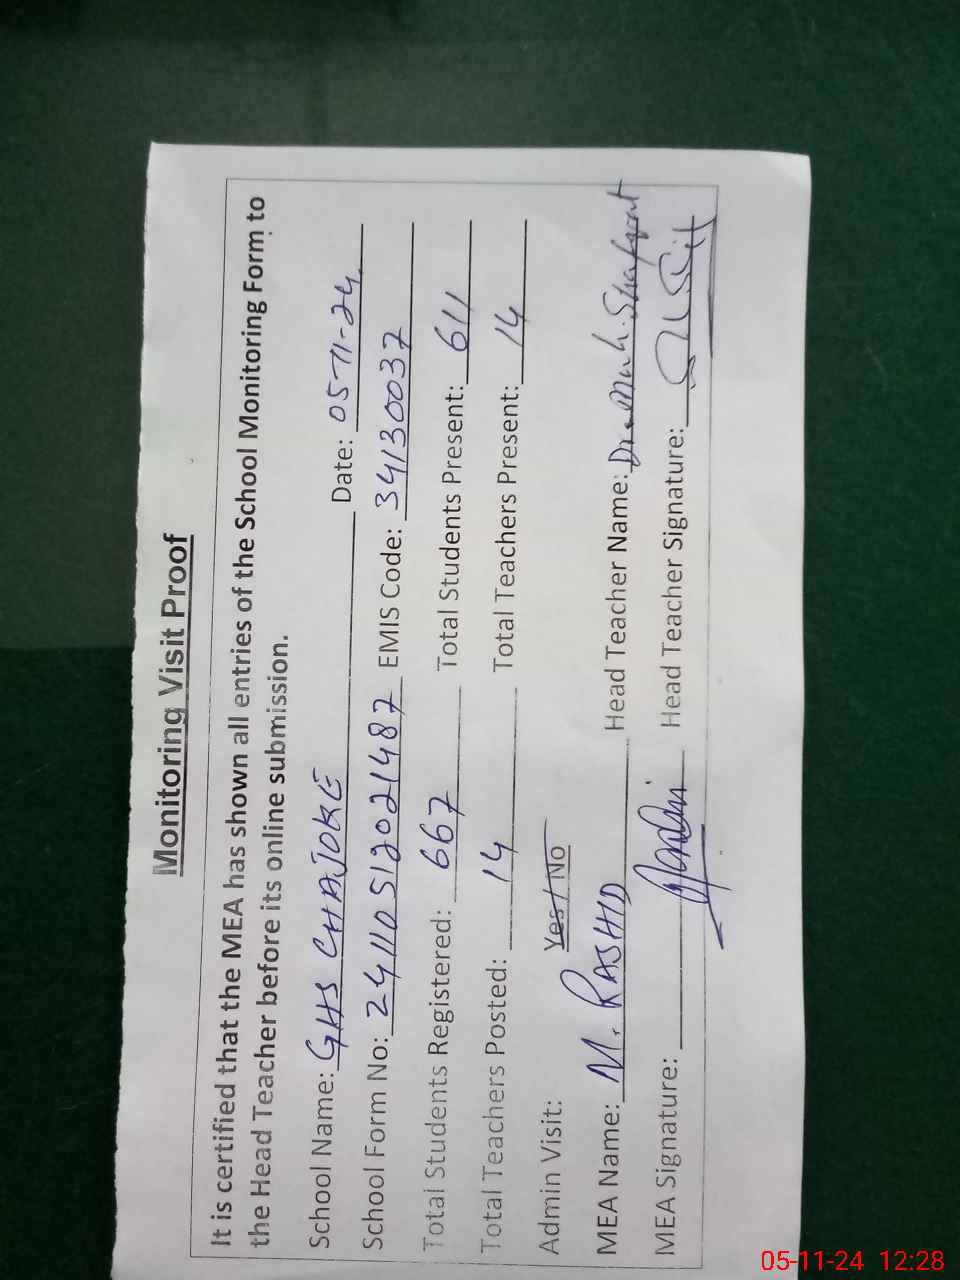 Monitoring Visit Proof
It is certified that the MEA has shown all entries of the School Monitoring Form to
the Head Teacher before its online submission.
School Name: GHS CHAJOKE Date: 05-11-24
School Form No: 24110512021487 EMIS Code: 34130037
Total Students Registered: 667 Total Students Present: 611
Total Teachers Posted: 14 Total Teachers Present: 14
Admin Visit: Yes / No
MEA Name: M. RASHID Head Teacher Name:
MEA Signature: Head Teacher Signature:
05-11-24 12:28